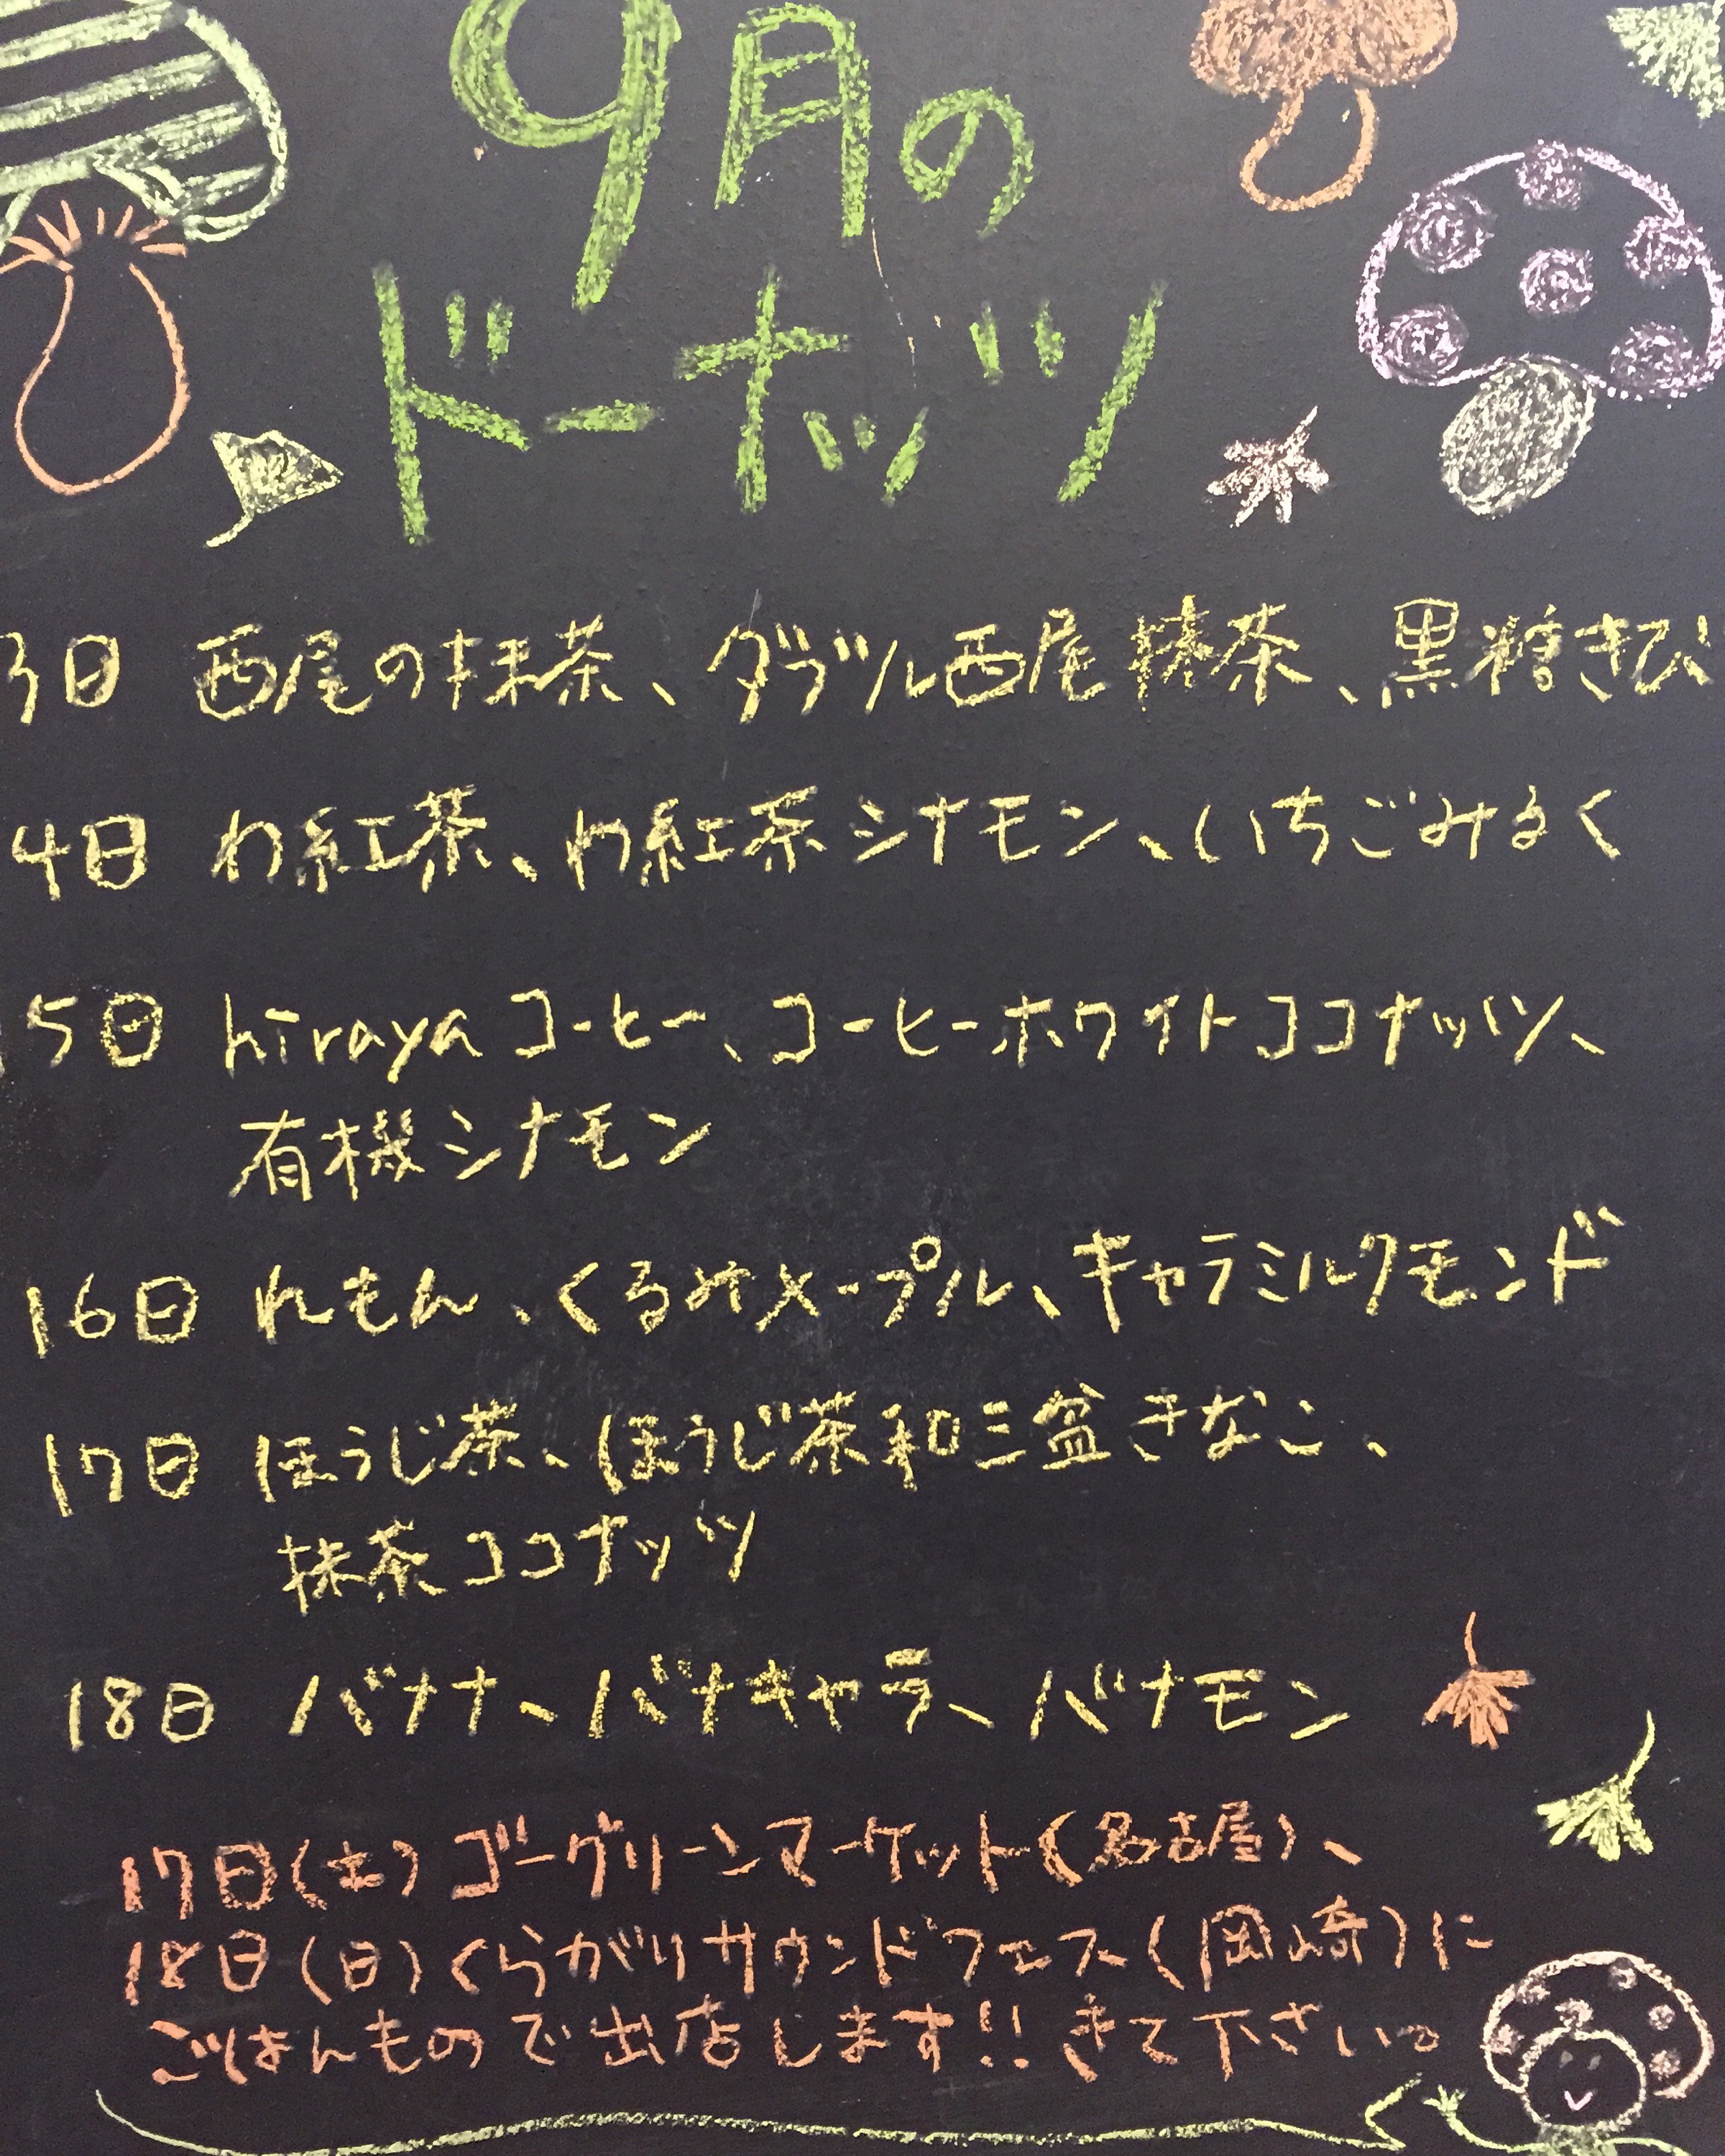 9月の
ドーナッツ
3日 西尾の抹茶、ダブル西尾抹茶、黒糖きび
4日 わ紅茶、わ紅茶シナモン、いちごみるく
15日 hirayaコーヒー、コーヒーホワイトココナッツ、
有機シナモン
16日 れもん、くるみメープル、キャラミルクモンド
17日 ほうじ茶、ほうじ茶和三盆きなこ、
抹茶ココナッツ
18日 バナナ、バナキャラ、バナモン
17日(土)ゴーグリーンマーケット(名古屋)、
18日(日)くらがりサウンドフェス(岡崎)に
ごはんもので出店します!!きて下さい。